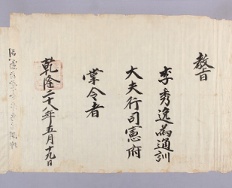 敎旨
李秀逸爲通訓
大夫行司憲府
掌令者
乾隆二十八年五月十九日